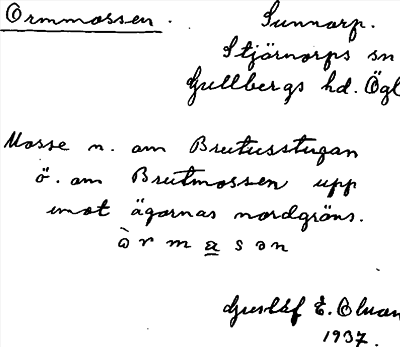 Ormmossen. Sunnorp.
Stjärnorps sn
Gullbergs hd. Ögl
Mosse n. om Brutusstugan
ö. om Brutmossen upp
imot ägornas nordgräns.
òrmasən
Gustaf E.
1937.